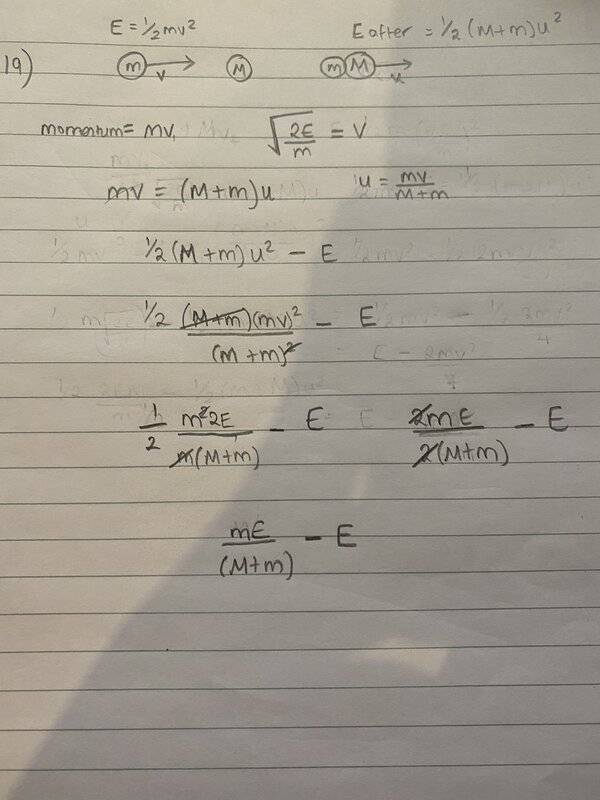 E = ½mv² E after = ½ (M+m)u²
19) m v M m M u
momentum = mv, √(2E/m) = V
mv = (M+m)u u = mv/(M+m)
½ (M+m)u² − E
½ (M+m)(mv)²/(M+m)² − E
1/2 m²2E/m(M+m) − E 2mE/2(M+m) − E
mE/(M+m) − E